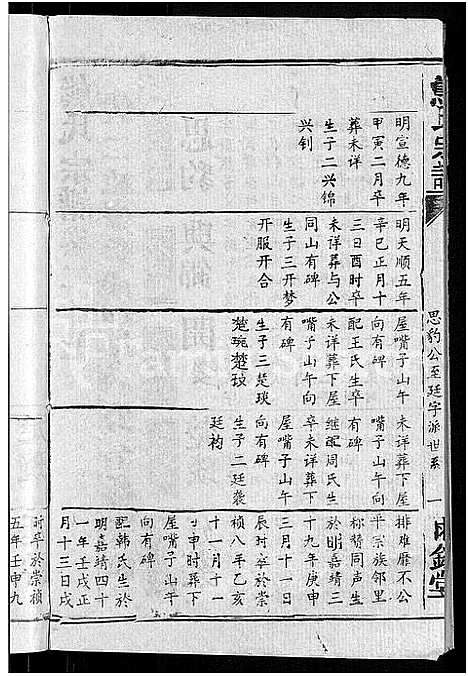 宗譜
思豹公至廷字派世系
一
明宣德九年
甲寅二月卒
葬未详
生子二兴锦
兴钊
明天顺五年
辛巳正月十
三日酉时卒
未详葬与公
同山有碑
生子三开梦
开服开合
屋嘴子山午
向有碑
配王氏生卒
未详葬下屋
嘴子山午向
有碑
生子三楚琰
楚琬楚玟
未详葬下屋
嘴子山午
有碑
继配周氏生
卒未详葬下
屋嘴子山午
向有碑
生子二廷袭
廷袀
排难靡不公
平宗族邻里
称赞同声生
於明嘉靖三
十九年庚申
三月十一日
辰时卒於崇
祯八年乙亥
十一月十一
日申时葬下
屋嘴子山午
向有碑
配韩氏生於
明嘉靖四十
一年壬戌正
月十三日戌
时卒於崇祯
五年壬申九